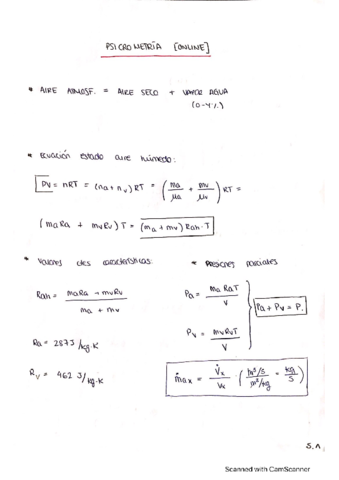 PSICROMETRÍA [ONLINE]
* AIRE ATMOSF. = AIRE SECO + VAPOR AGUA
(0-4%)
* Ecuación estado aire húmedo:
PV = nRT = (na + nv) RT = (ma/μa + mv/μv) RT =
(maRa + mvRv) T = (ma + mv) Rah · T
* Valores ctes característicos:
Rah = (maRa + mvRv) / (ma + mv)
Ra = 287 J/kg·K
Rv = 462 J/kg·K
* Presiones parciales
Pa = maRaT / V
Pv = mvRvT / V
Pa + Pv = P.
ṁax = V̇x / Vx (m³/s / m³/kg = kg/s)
S.A
Scanned with CamScanner